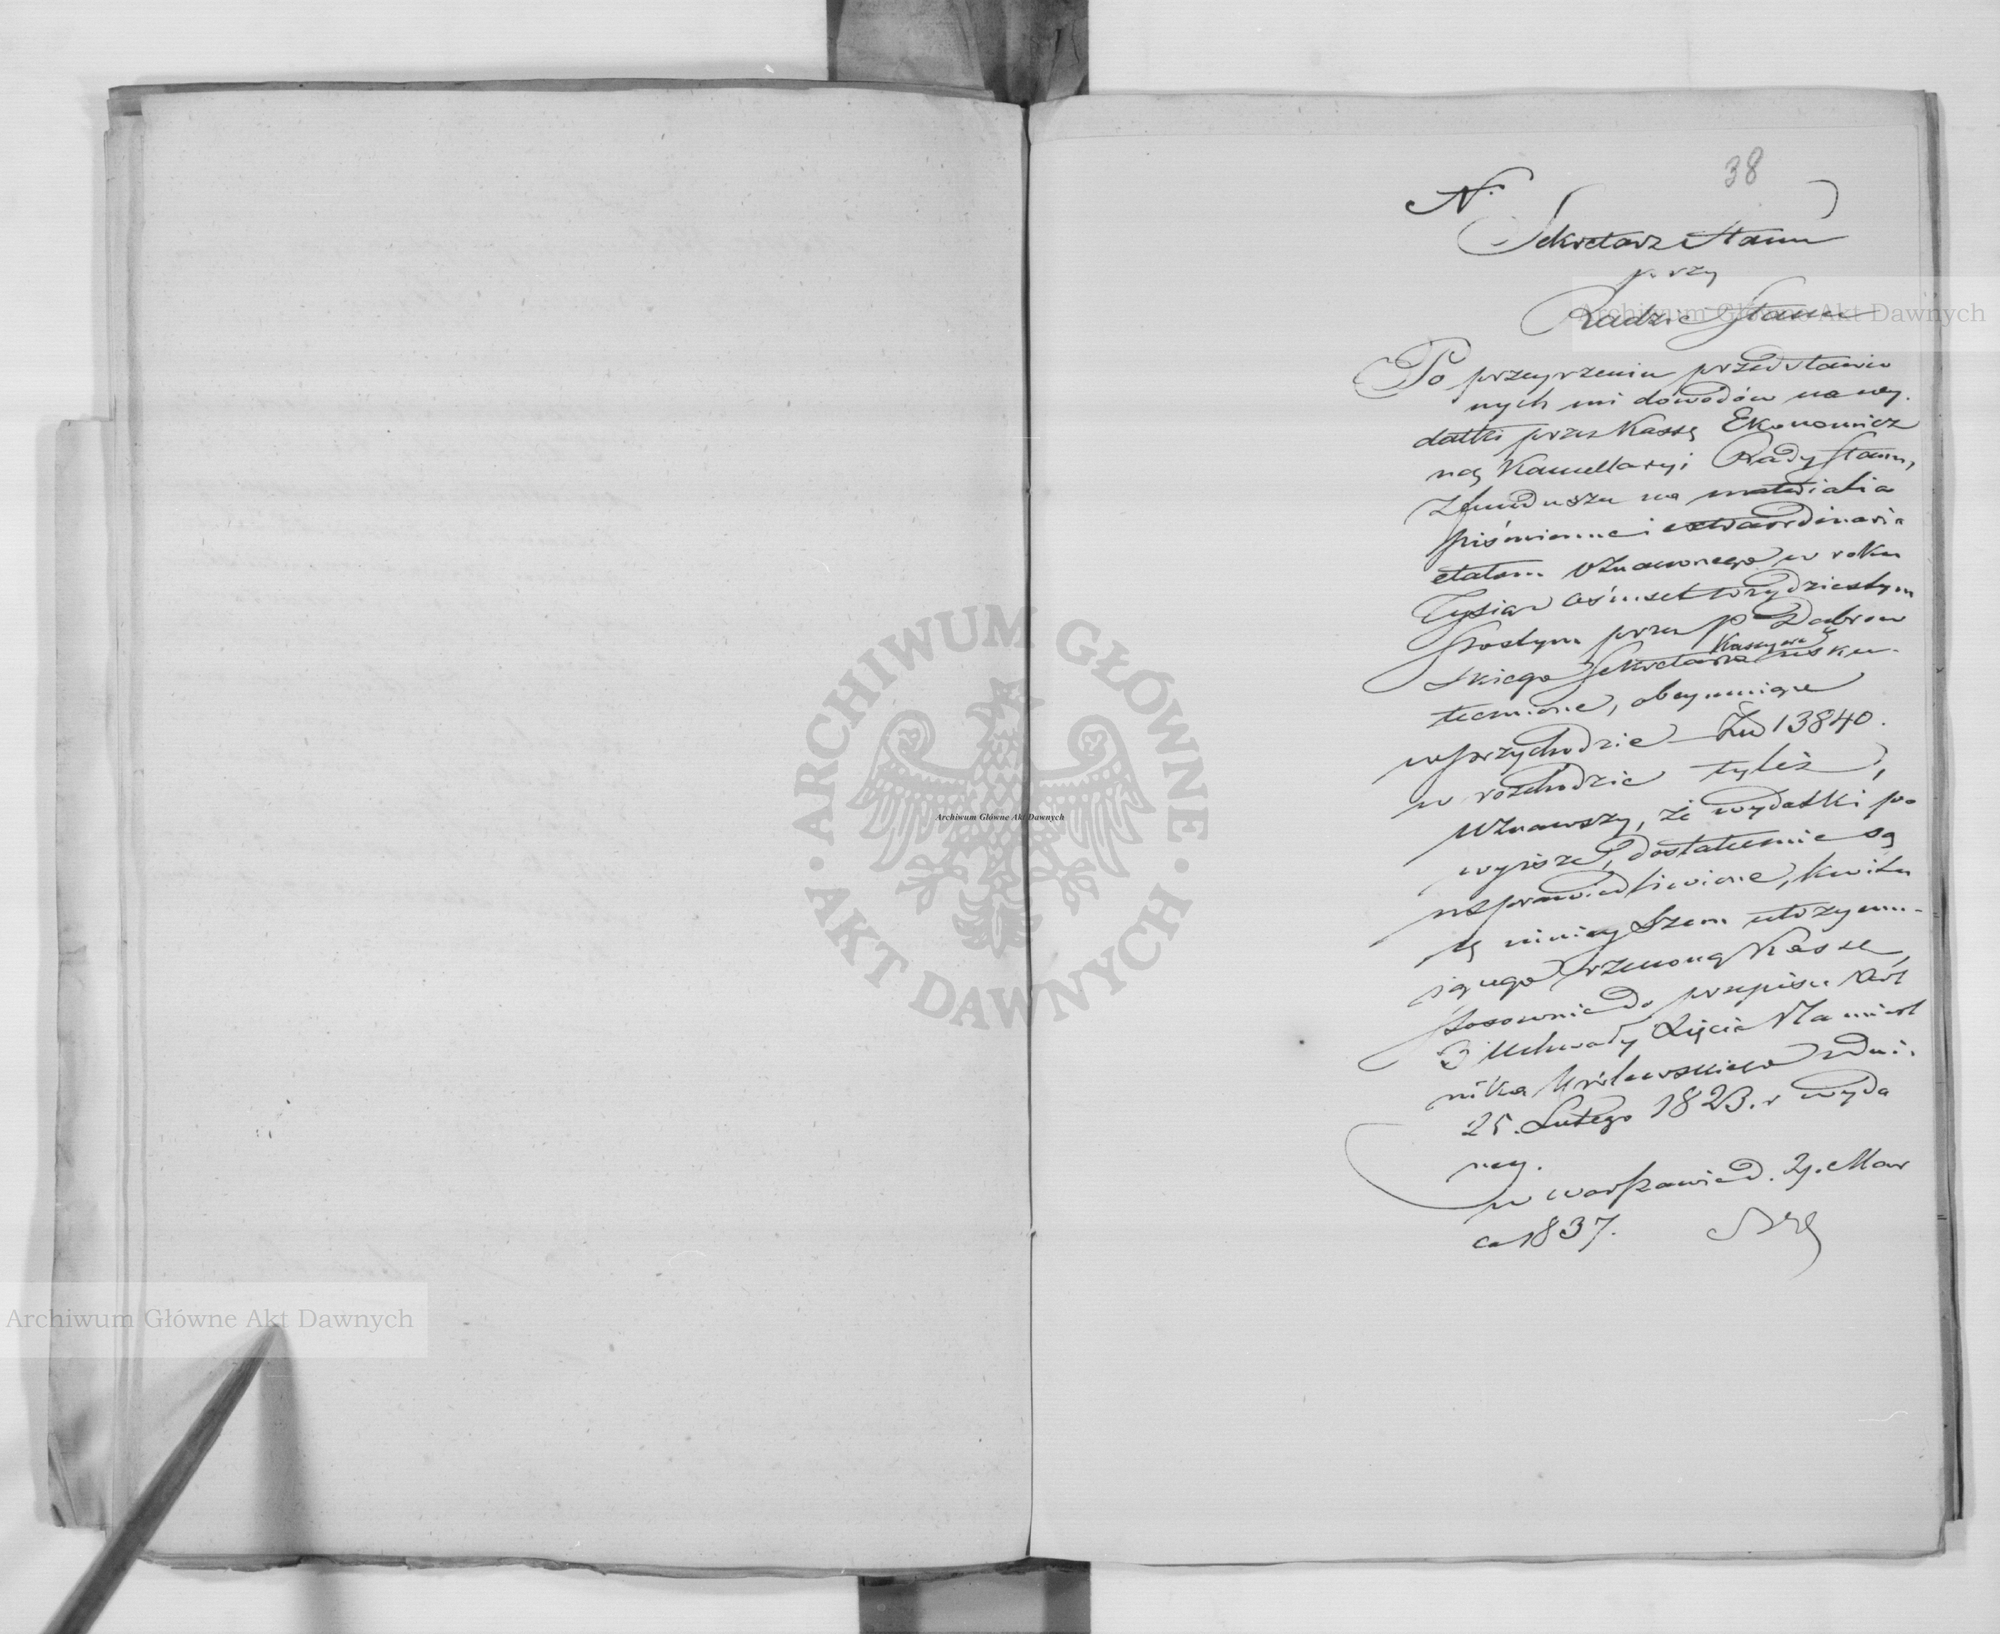 38
N.
Sekretarz Stanu
przy
Radzie Stanu
Po przeyrzeniu przedstawio
nych mi dowodów na wy.
datki przez Kassę Ekonomicz
ną Kancellaryi Rady Stanu,
z funduszu na materialia
piśmienne i extraordinaria
etatem uznaconego w roku
Tysiąc ośmset trzydziestym
szostym przez P. Dąbrow
Kassyera
skiego Sekretarza usku-
tecznione, obeymuiące
w przychodzie Złp 13840.
w rozchodzie tyleż,
Uznawszy, że wydatki po
wyższe, dostatecznie są
usprawiedliwione, kwitu
ię ninieyszem utrzymu-
iącego rzeczoną Kassę,
stosownie do przepisu Art
3 Uchwały Xięcia Namiest
nika Królewskiego z dni.
25. Lutego 1823. r wyda
ney.
w Warszawie d. 29. Mar
ca 1837.
Archiwum Główne Akt Dawnych
Archiwum Główne Akt Dawnych
Archiwum Główne Akt Dawnych
ARCHIWUM GŁÓWNE AKT DAWNYCH